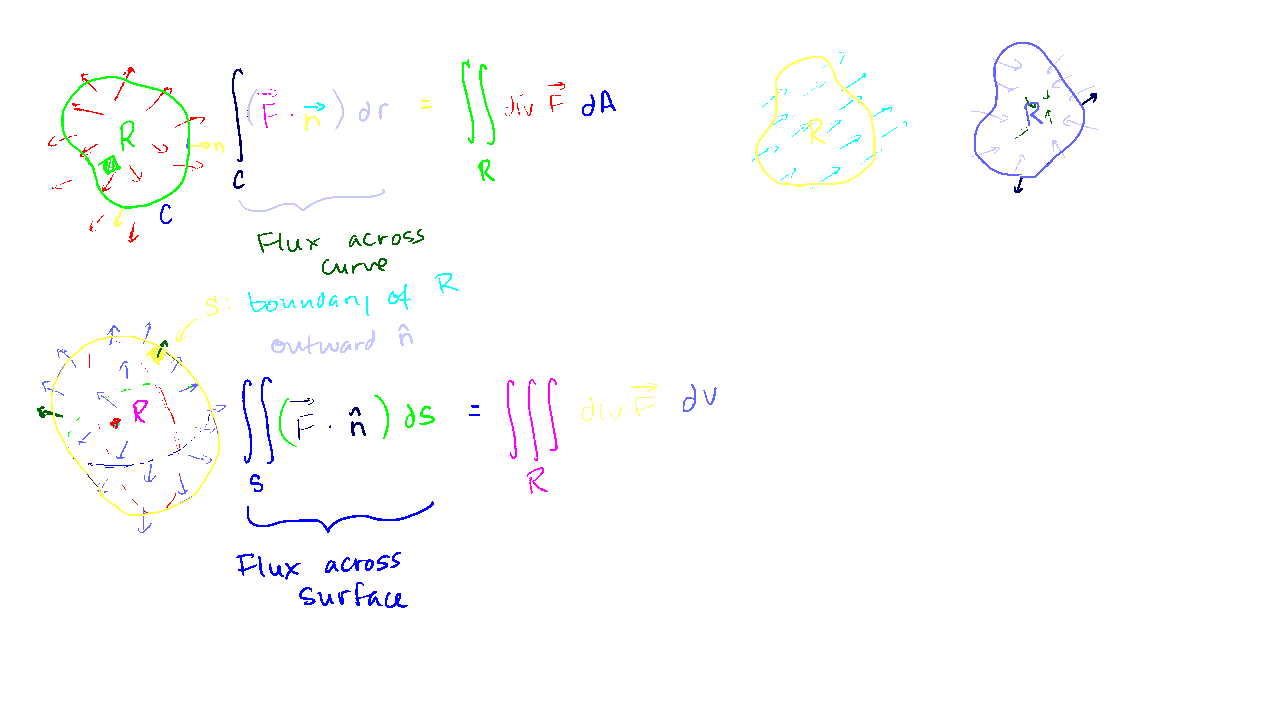 R
n
C
∫ ( F⃗ · n⃗ ) dr = ∬ div F⃗ dA
C
R
R
R
Flux across
curve
S: boundary of R
outward n̂
R
∬ ( F⃗ · n̂ ) ds = ∭ div F⃗ dv
S
R
Flux across
surface